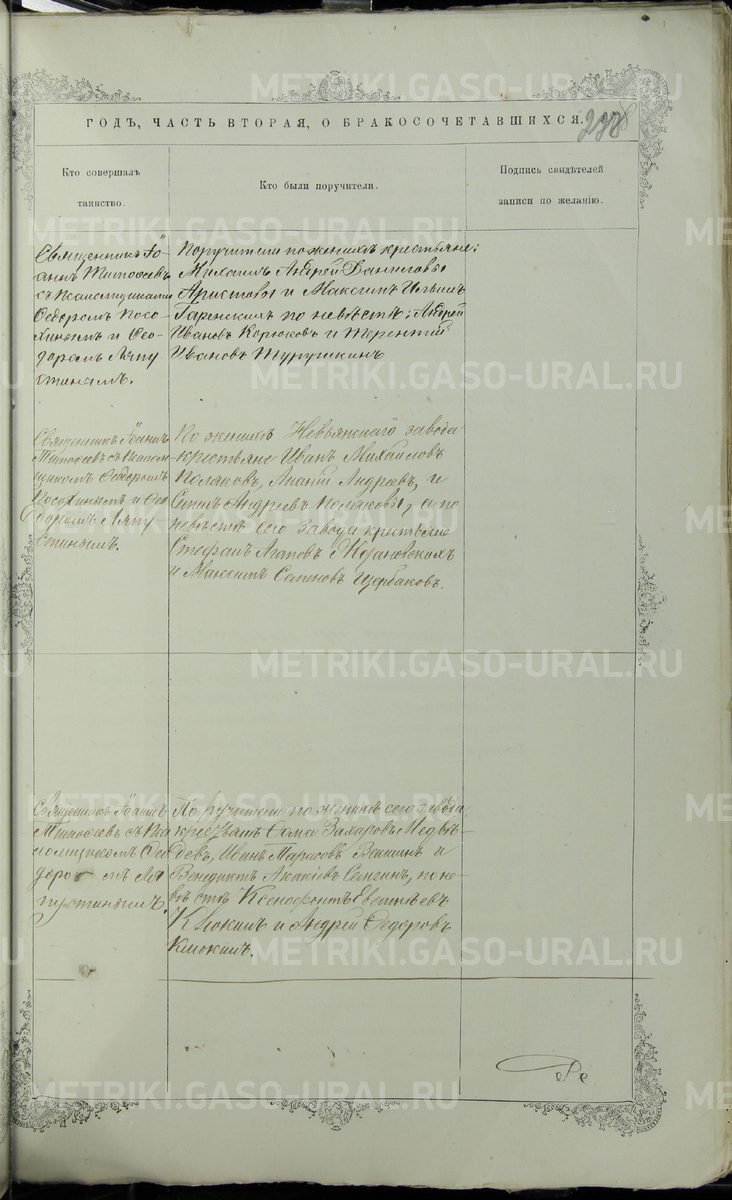 ГОДЪ, ЧАСТЬ ВТОРАЯ, О БРАКОСОЧЕТАВШИХСЯ.
Кто совершалъ
таинство.
Кто были поручители.
Подпись свидѣтелей
записи по желанію.
Священникъ Іо-
аннъ Тимофеевъ
съ псаломщиками
Ѳедоромъ Посо-
хинымъ и Ѳео-
доромъ Ляпу
стинымъ.
Поручители по женихѣ крестьяне:
Михаилъ Андрей Даниловы
Аристовы и Максимъ Ильинъ
по невѣстѣ: Андрей
Ивановъ Корюковъ и Терентій
Ивановъ Турушкинъ
Священникъ Іоаннъ
Тимофеевъ съ псалом-
щикомъ Ѳедоромъ
Посохинымъ и Ѳео
доромъ Ляпу
стинымъ.
По женихѣ Невьянскаго завода
крестьяне Иванъ Михайловъ
Поляковъ, Ананій Андреевъ, и
Андреевъ Поляковы, а по
невѣстѣ сего завода крестьяне
Стефанъ Агаповъ
и Максимъ Щербаковъ.
Священникъ Іоаннъ
Тимофеевъ съ пса
ломщикомъ Ѳео
доромъ Ля
пустинымъ.
Поручители по женихѣ сего завода
Ѳома Захаровъ Медвѣ-
девъ, Иванъ и
Венедиктъ по не-
вѣстѣ Ксенофонтъ Евстигнѣевъ
Клюкинъ и Андрей Ѳедоровъ
Клюкинъ.
METRIKI.GASO-URAL.RU